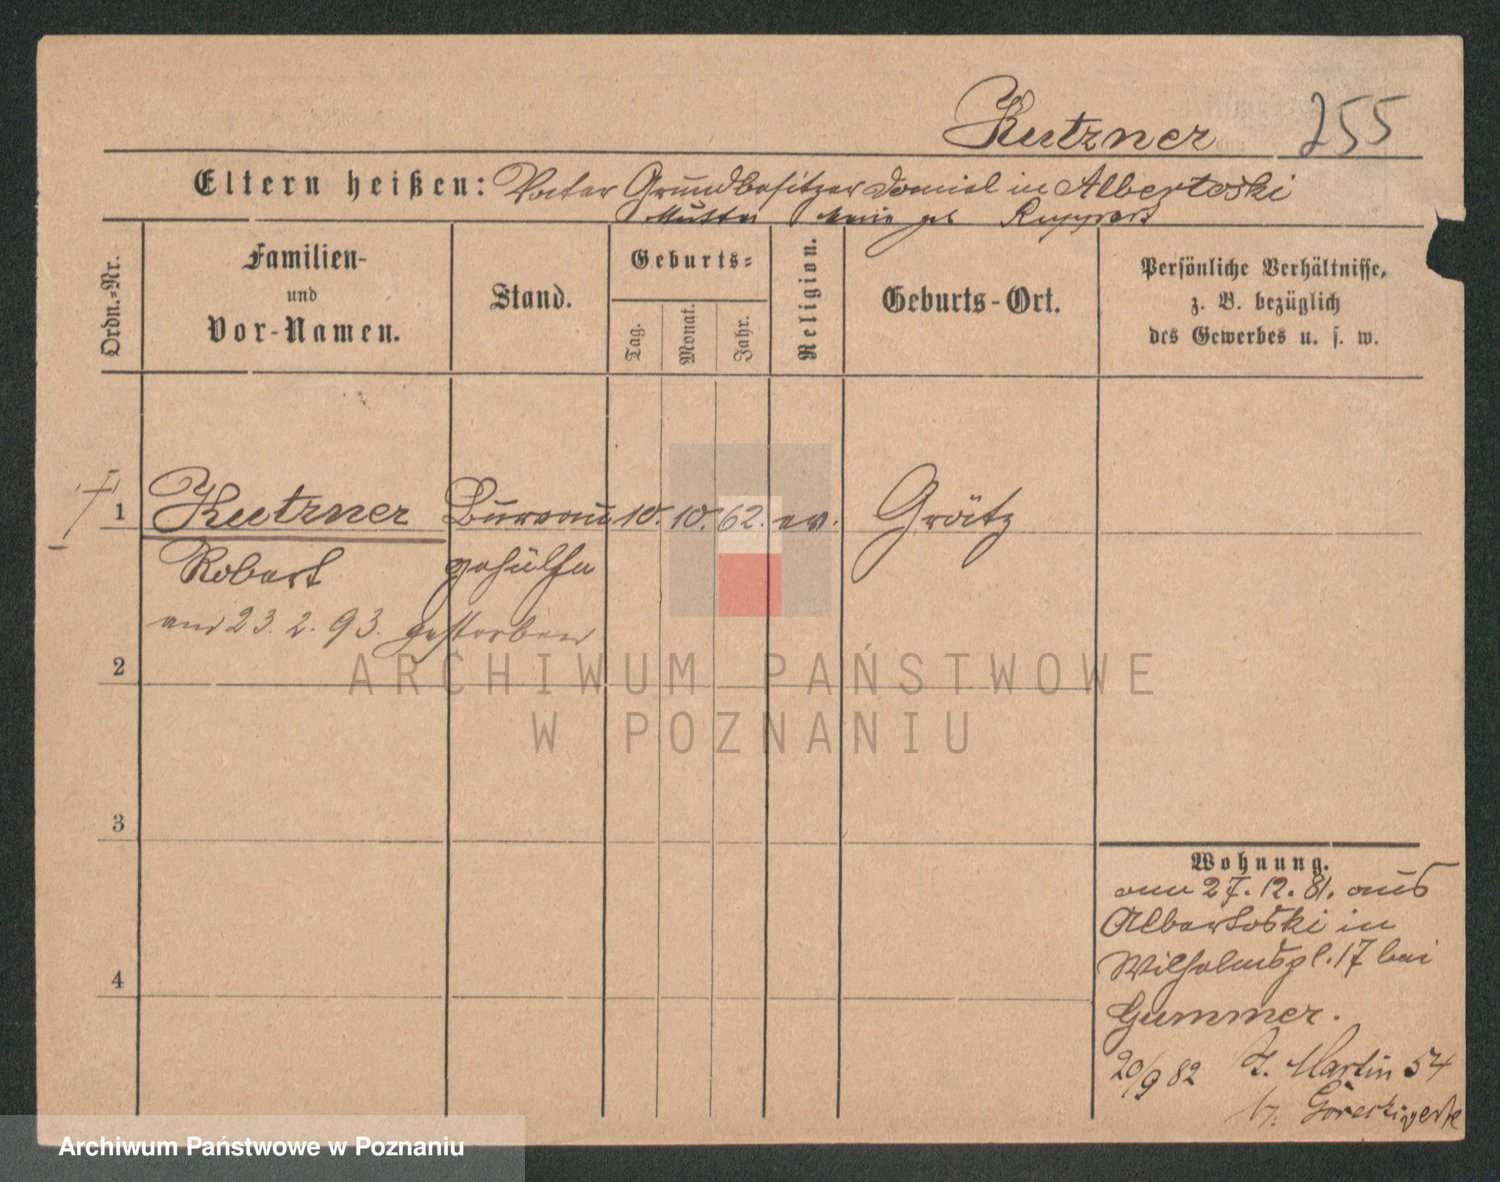 Kutzner 255
Eltern heißen: Vater Grundbesitzer Daniel in Albertoski
Mutter Marie geb Ruppert
Ordn.-Nr.
Familien-
und
Vor-Namen.
Stand.
Geburts-
Tag.
Monat.
Jahr.
Religion.
Geburts-Ort.
Persönliche Verhältnisse,
z. B. bezüglich
des Gewerbes u. s. w.
1 Kutzner Bureau 10. 10. 62. ev. Grätz
Robert gehülfe
am 23. 2. 93. gestorben
2
3
4
Wohnung.
am 27. 12. 81. aus
Albertoski in
Wilhelmspl. 17 bei
Gummer.
20/9 82 St. Martin 54
b/.
ARCHIWUM PAŃSTWOWE
W POZNANIU
Archiwum Państwowe w Poznaniu